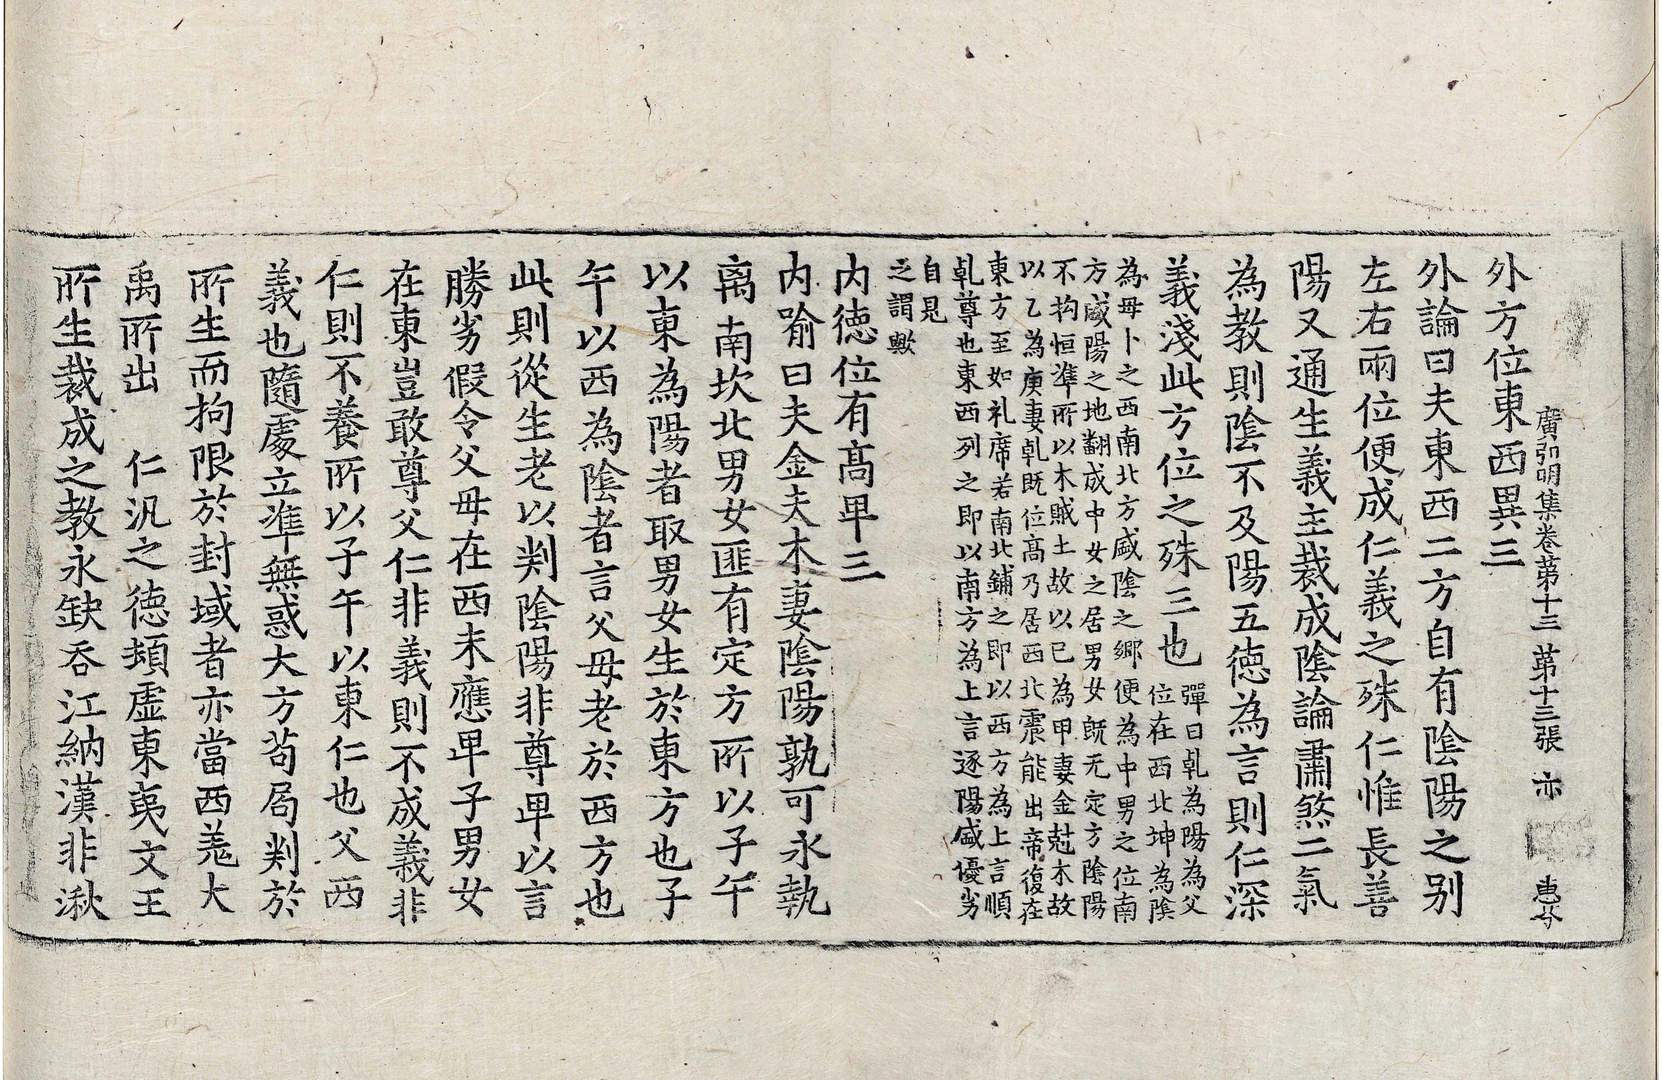 廣弘明集卷苐十三 苐十三張 亦 惠兮
外方位東西異三
外論曰夫東西二方自有陰陽之别
左右兩位便成仁義之殊仁惟長善
陽又通生義主裁成陰論肅煞二氣
為教則陰不及陽五德為言則仁深
義淺此方位之殊三也
彈曰乹為陽為父
位在西北坤為陰
為母卜之西南北方咸陰之鄉便為中男之位南
方盛陽之地翻成中女之居男女既无定方陰陽
不拘恒準所以木賊土故以巳為甲妻金尅木故
以乙為庚妻乹既位髙乃居西北震能出帝復在
東方至如礼席若南北鋪之即以西方為上言順
乹尊也東西列之即以南方為上言逐陽盛優劣
自見
之謂歟
内德位有髙卑三
内喻曰夫金夫木妻陰陽孰可永執
离南坎北男女匪有定方所以子午
以東為陽者取男女生於東方也子
午以西為陰者言父母老於西方也
此則從生老以判陰陽非尊卑以言
勝劣假令父母在西未應卑子男女
在東豈敢尊父仁非義則不成義非
仁則不養所以子午以東仁也父西
義也隨處立準無惑大方苟局判於
所生而拘限於封域者亦當西羗大
禹所出 仁汎之德頓虛東夷文王
所生裁成之教永缺吞江納漢非湫